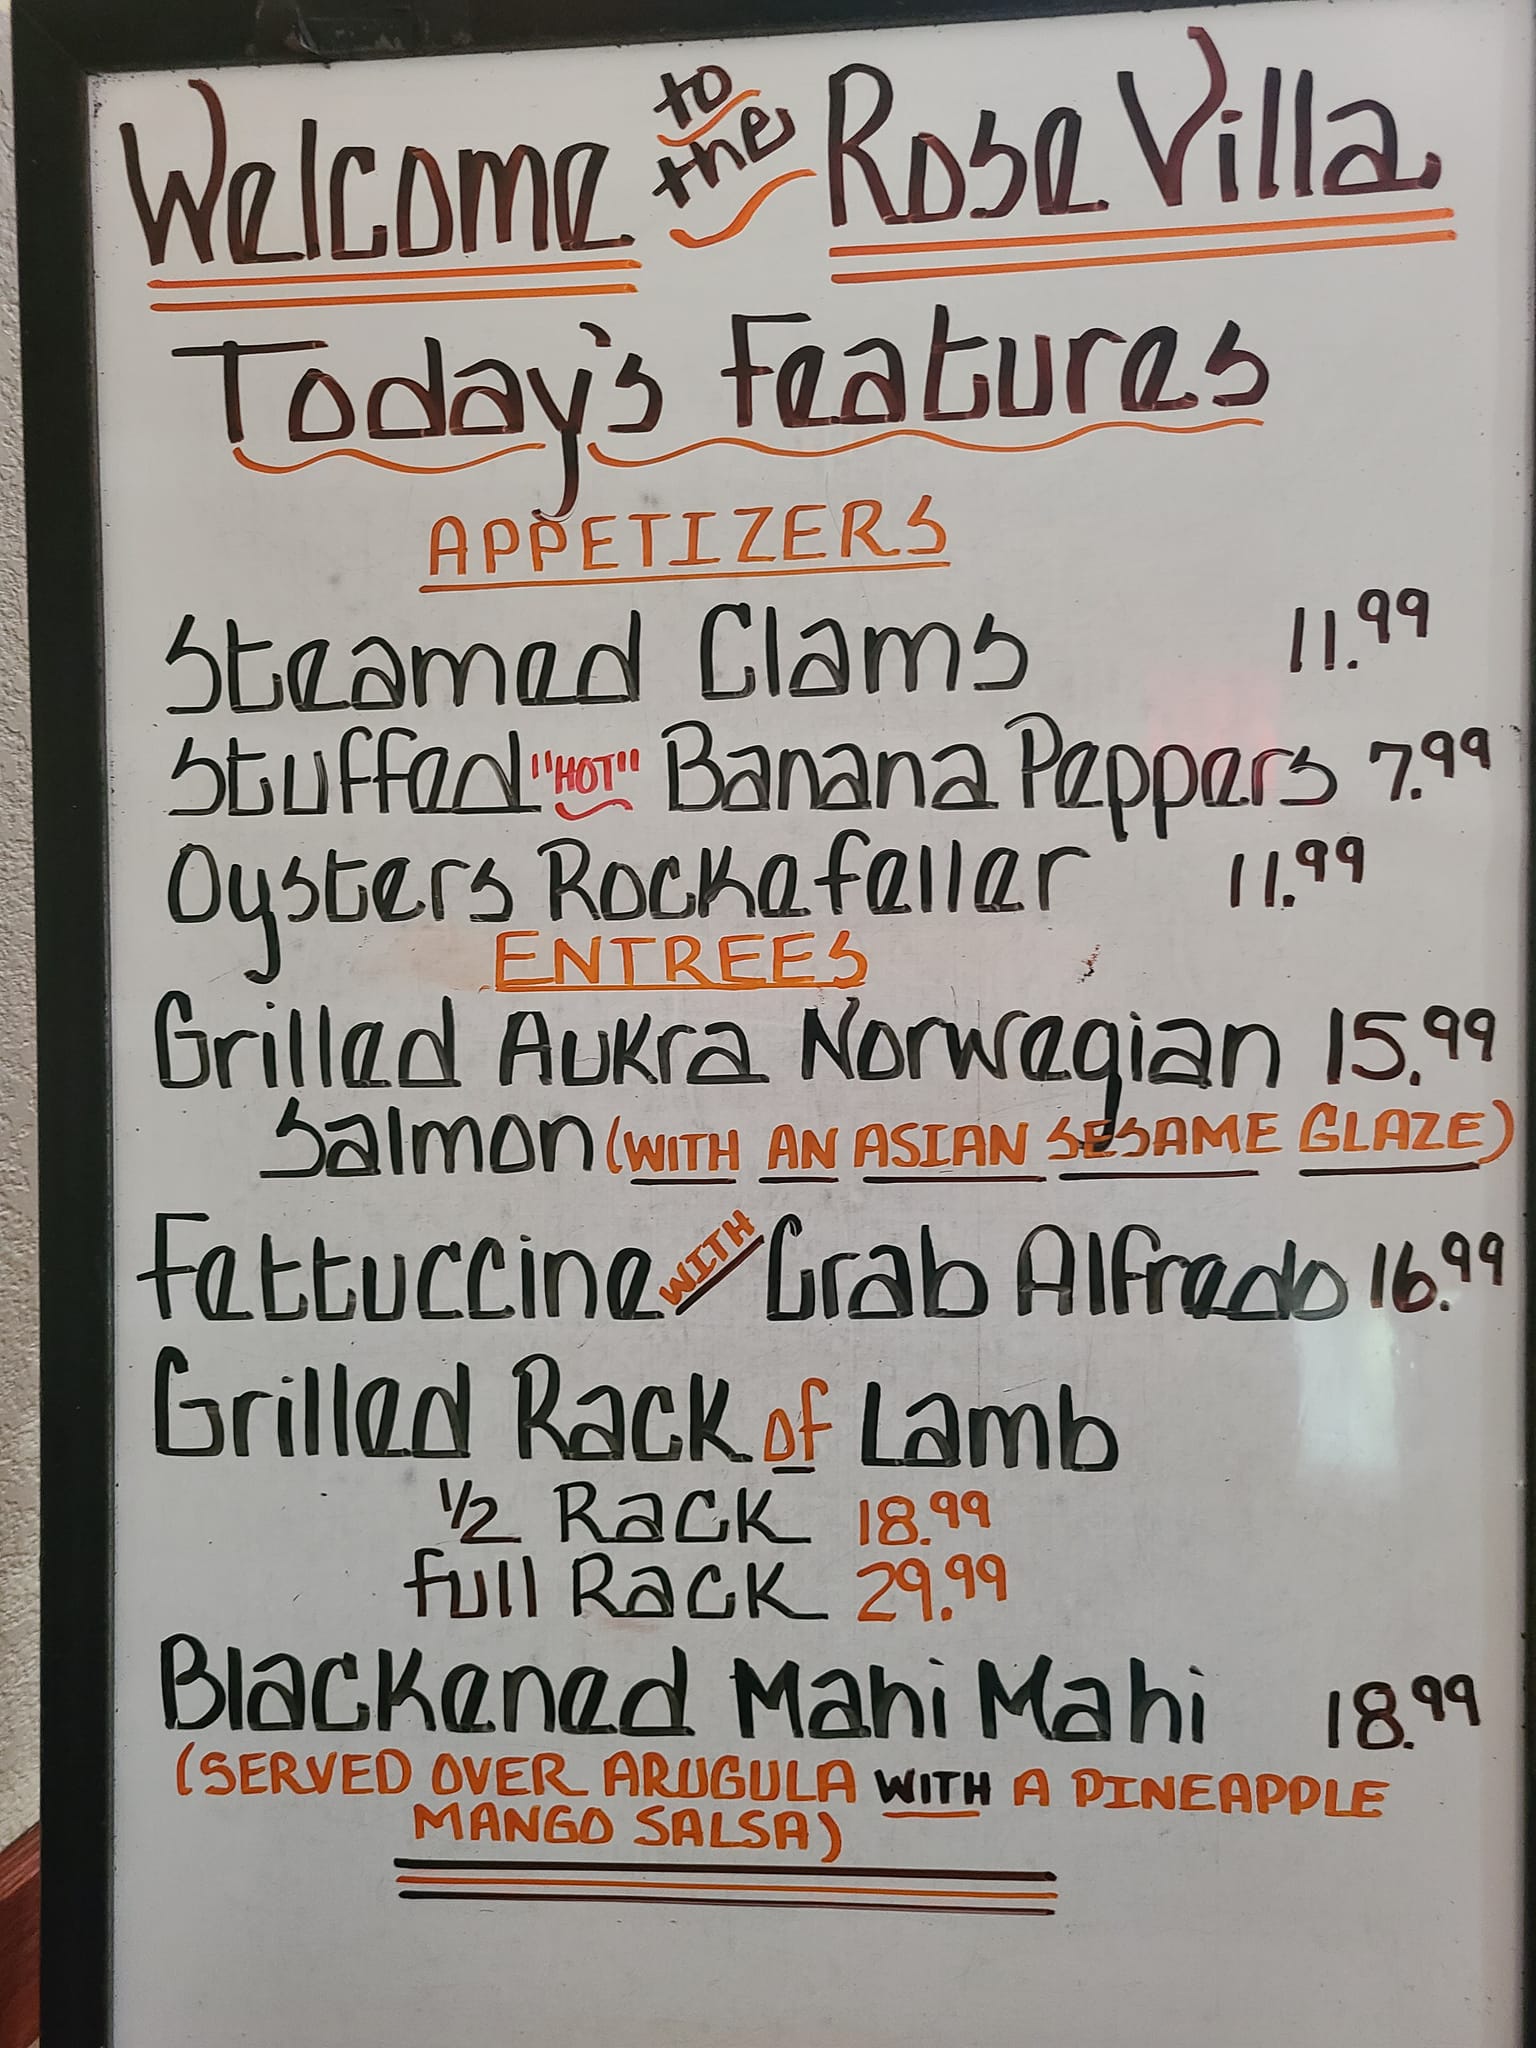 Welcome to the Rose Villa
Today's Features
APPETIZERS
Steamed Clams 11.99
Stuffed "HOT" Banana Peppers 7.99
Oysters Rockefeller 11.99
ENTREES
Grilled Aukra Norwegian 15.99
Salmon (WITH AN ASIAN SESAME GLAZE)
Fettuccine WITH Crab Alfredo 16.99
Grilled Rack of Lamb
1/2 Rack 18.99
full Rack 29.99
Blackened Mahi Mahi 18.99
(SERVED OVER ARUGULA WITH A PINEAPPLE
MANGO SALSA)